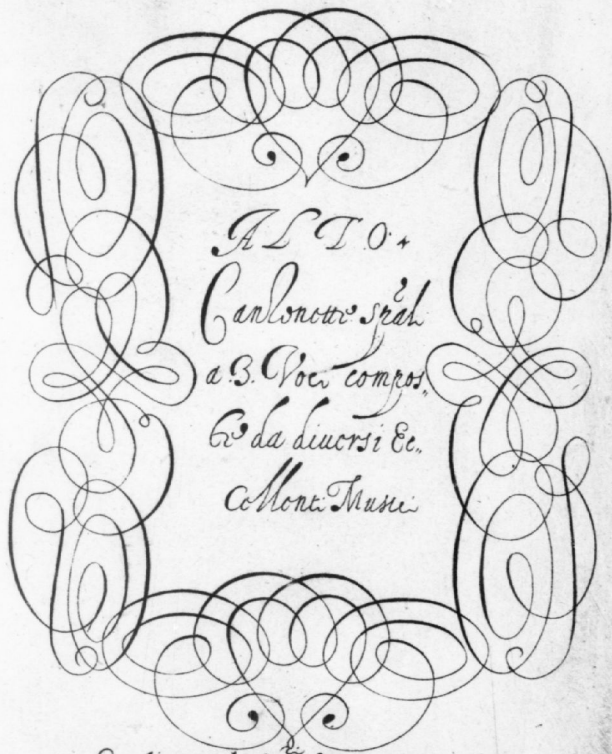 ALTO.
Canzonette sp̃ali
a 3. Voci compos„
te da diuersi Ec„
cellenti Musici